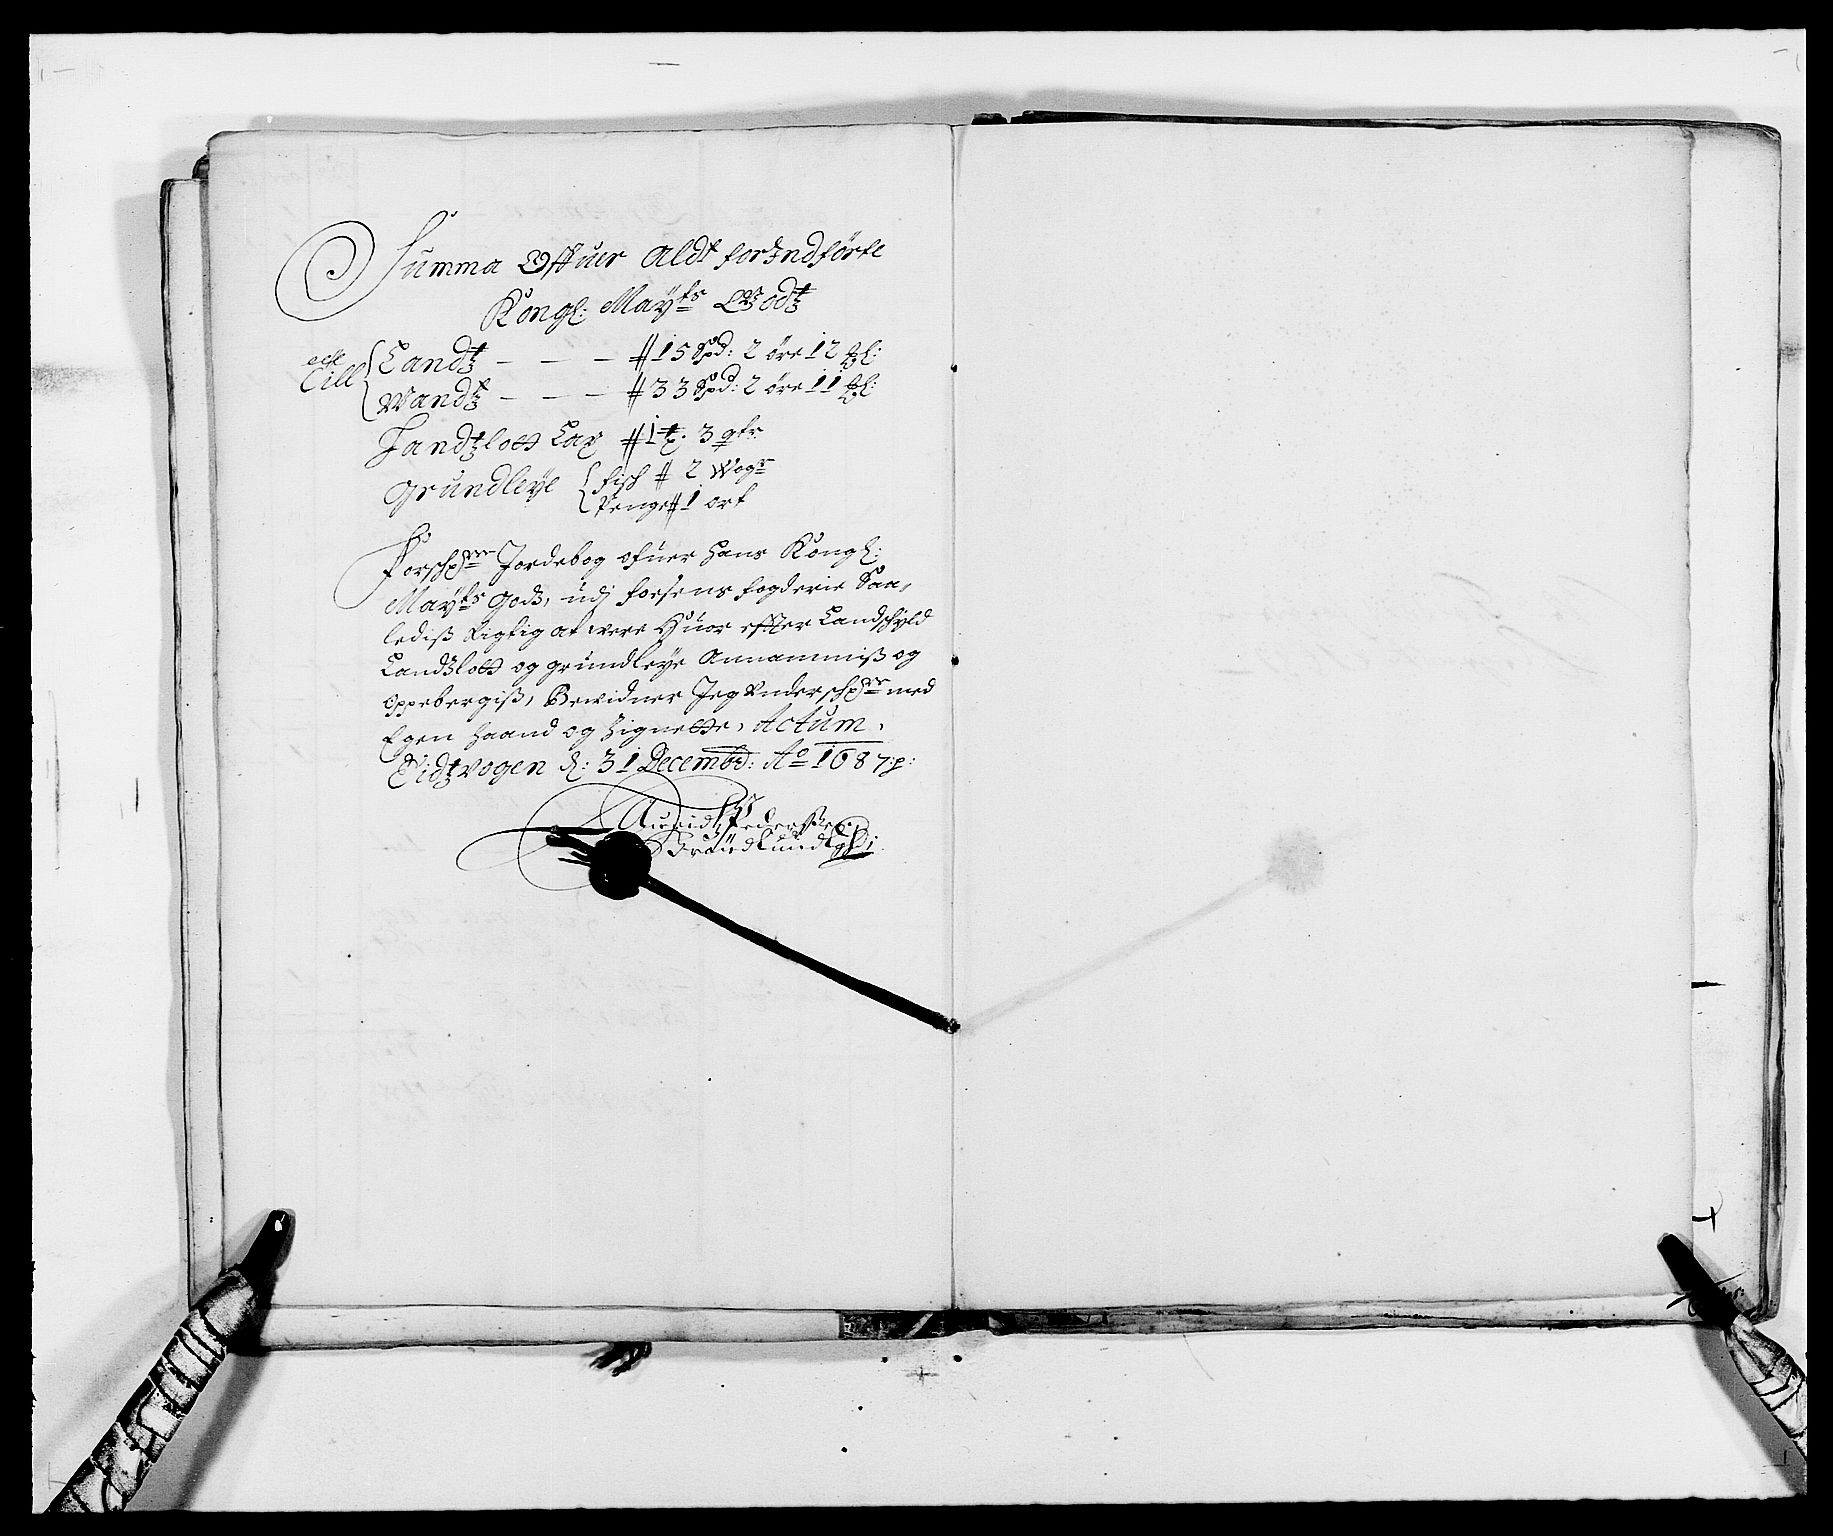 Summa Offuer Aldt forindførte
Kongl: Mayts Godtz
Till
Landtz — — — # 15 Spd: 2 øre 12 ßl:
Vandtz — — — # 33 Spd: 2 øre 11 ßl:
Landtzlott Lax # 1 t. 3 qtr
Grundleye fisch # 2 Wogr
Penge # 1 ort
Forschrne Jordebog ofuer Hans Kongl:
Mayts Godz, udj fosens fogderie Saa,
lediß Rigtig at were Huor effter Landschyld
Landzlott og grundleye Annammiß og
oppebergiß, Bewidner Jeg Underschrne med
Egen Haand og Zignette, Actum,
Eidtzvogen d: 31 Decembr: Ao 1687 p:
Pederßen